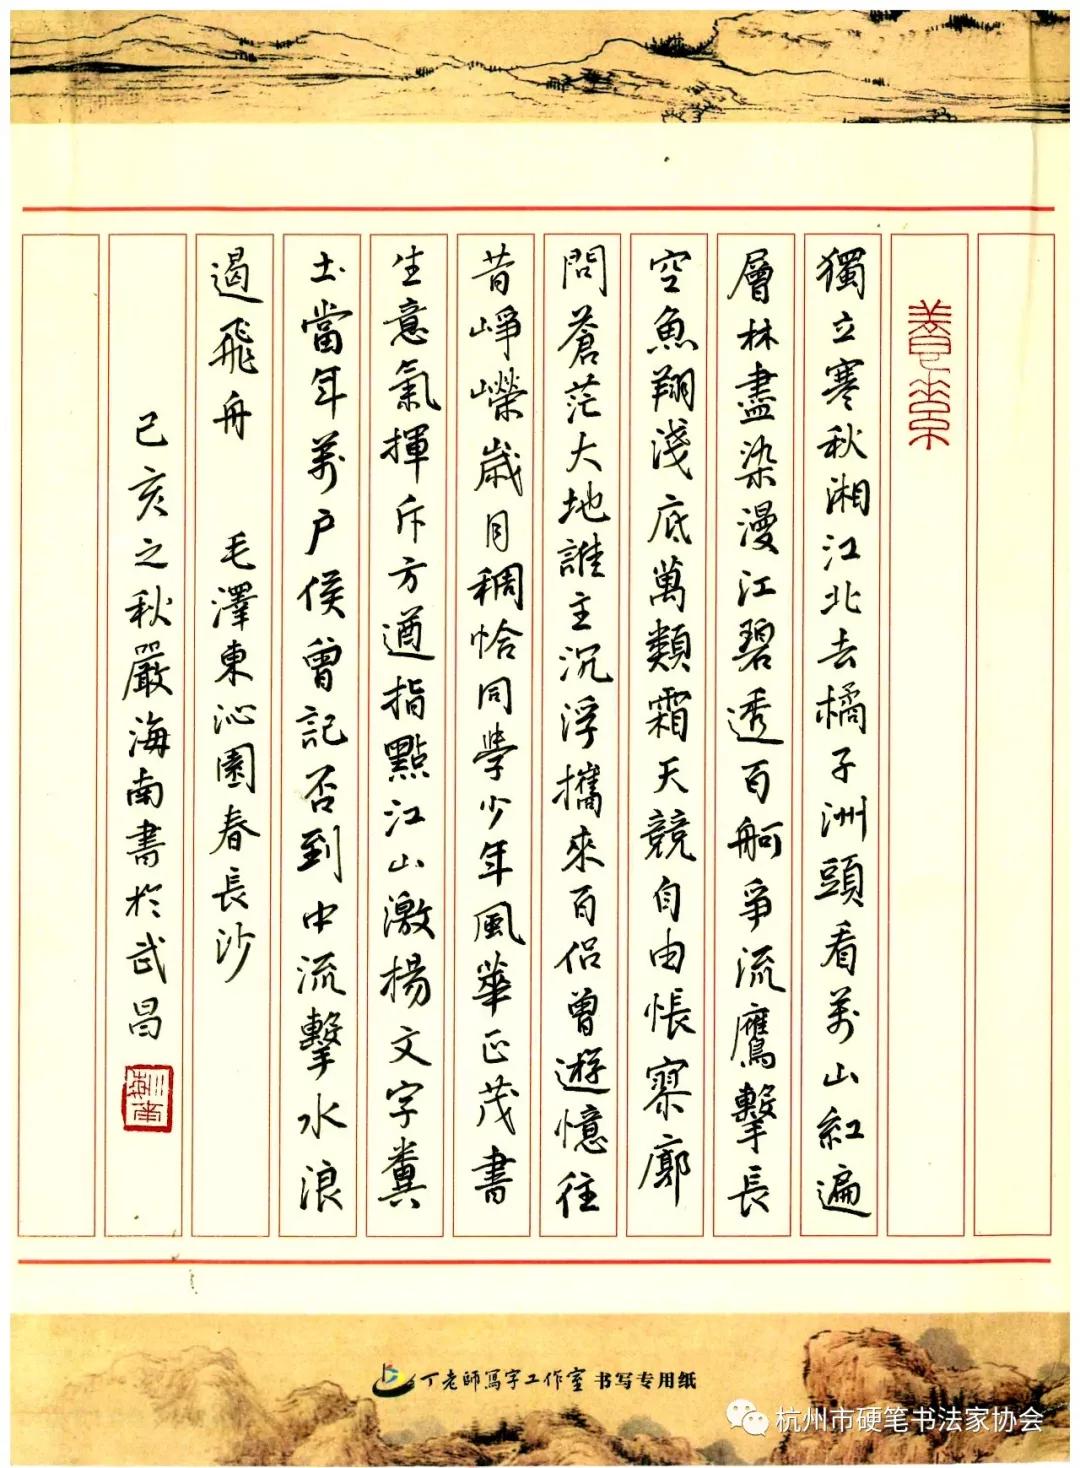 獨立寒秋湘江北去橘子洲頭看萬山紅遍
層林盡染漫江碧透百舸爭流鷹擊長
空魚翔淺底萬類霜天競自由悵寥廓
問蒼茫大地誰主沉浮攜來百侶曾遊憶往
昔崢嶸歲月稠恰同學少年風華正茂書
生意氣揮斥方遒指點江山激揚文字糞
土當年萬戶侯曾記否到中流擊水浪
遏飛舟 毛澤東沁園春長沙
己亥之秋嚴海南書於武昌
丁老師寫字工作室 书写专用纸
杭州市硬笔书法家协会